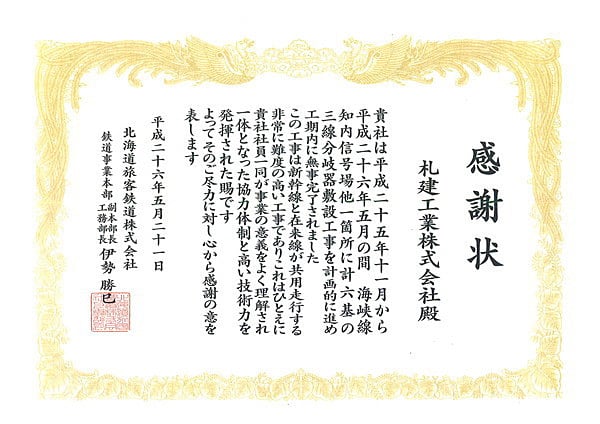 感謝状
札建工業株式会社殿
貴社は平成二十五年十一月から
平成二十六年五月の間 海峡線
知内信号場他一箇所に計六基の
三線分岐器敷設工事を計画的に進め
工期内に無事完了されました
この工事は新幹線と在来線が共用走行する
非常に難度の高い工事でありこれはひとえに
貴社社員一同が事業の意義をよく理解され
一体となった協力体制と高い技術力を
発揮された賜です
よってそのご尽力に対し心から感謝の意を
表します
平成二十六年五月二十一日
北海道旅客鉄道株式会社
鉄道事業本部 副本部長 工務部長 伊勢 勝巳